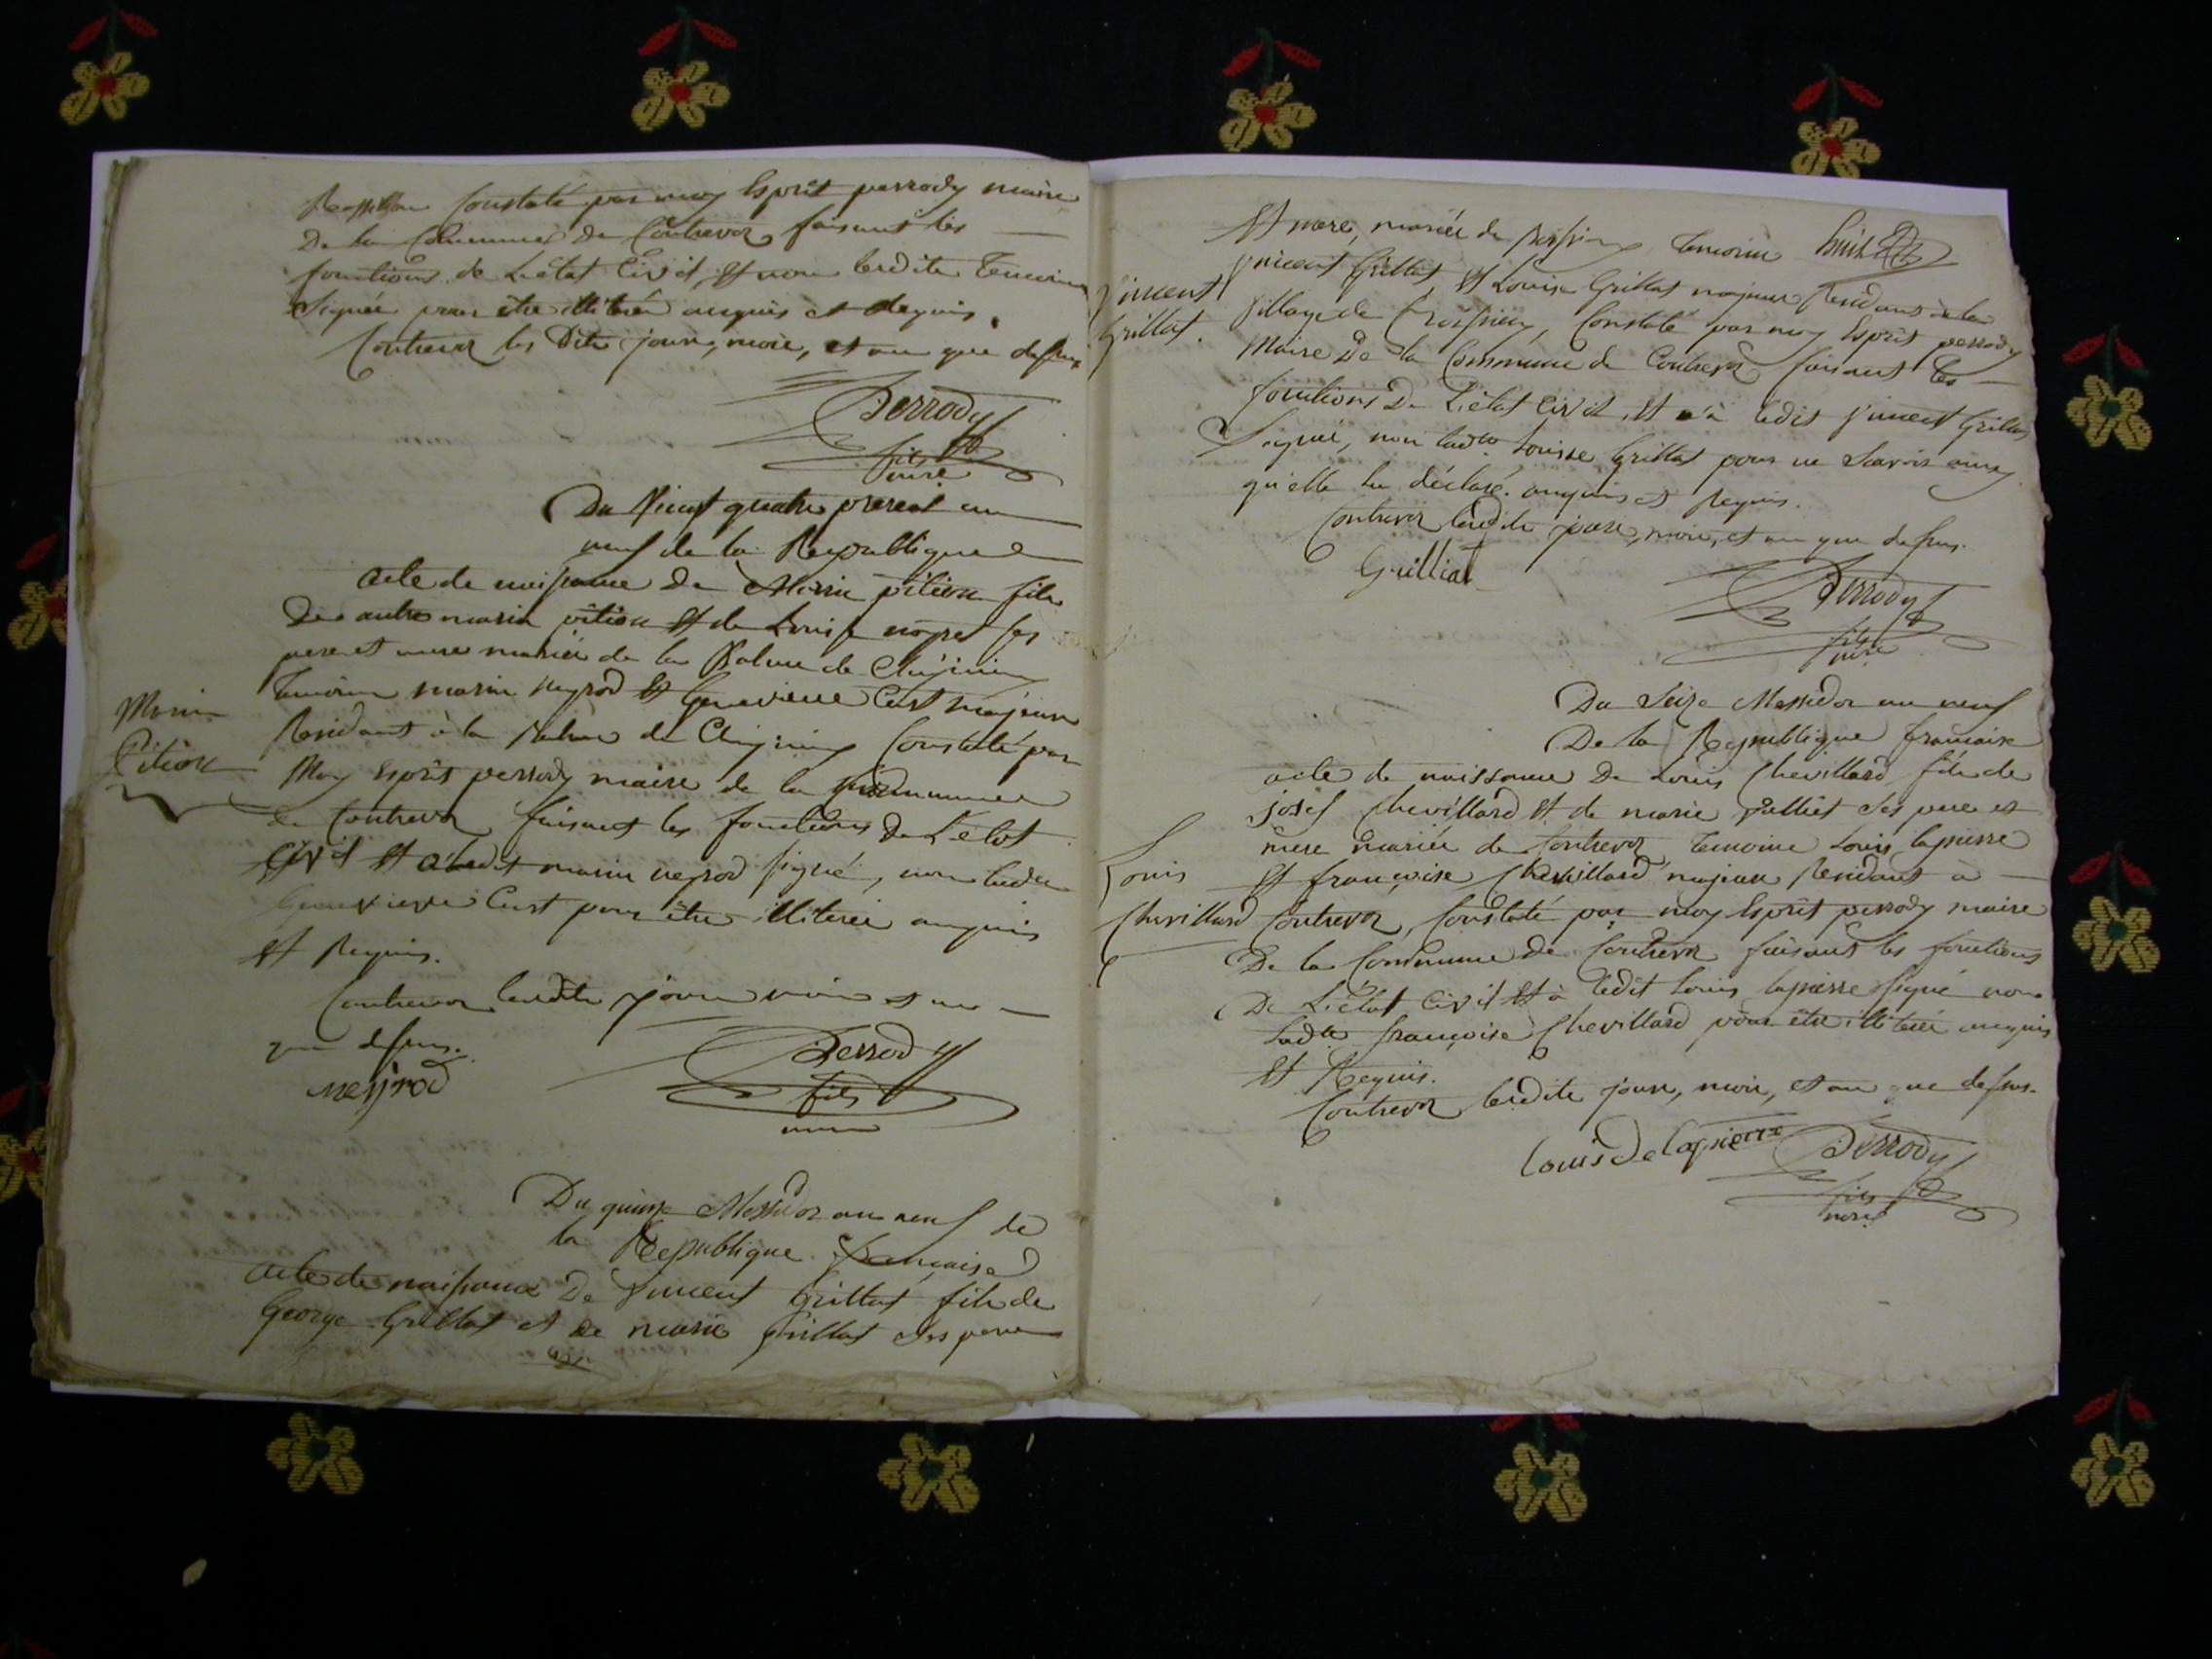 Constaté par moy Esprit perrody maire
De la Commune de Contrevoz faisant les
fonctions de L'état Civil, Et non lesdits Temoins
Signée pour être illiteré enquis et Requis.
Contrevoz les Dits jour, mois, et an que dessus
Perrody
fils
maire
Du Vingt quatre prereal an
neuf de la Republique
acte de naissance De Marin pition fils
De autre marin pition Et de Louise ses
pere et mere mariée de la Balme de
Temoins marin neyrod Et Genevieve Cust majeurs
Marin
Pition
Residant à la Balme de Constaté par
Moy Esprit perrody maire de la Commune
de Contrevoz faisant les fonctions De L'etat
Civil Et a ledit marin neyrod signé, non ladte
Genevieve Cust pour être illiterée enquis
Et Requis.
Contrevoz lesdits jour mois et an
que dessus.
neyrod
Perrody
fils
maire
Du quinze Messidor an neuf de
la Republique française
acte de naissance De Vincent Grillat fils de
George Grillat et de marie Grillat ses pere
Et mere, mariée de Temoins
Vincent
Grillat.
Vincent Grillat, Et Louise Grillat majeurs Residans à
Village de Constaté par moy Esprit perrody
Maire De la Commune de Contrevoz faisant les
fonctions De L'état Civil, Et a ledit Vincent Grillat
Signé, non ladte Louise Grillat pour ne Savoir ainsy
qu'elle la déclaré. enquis et Requis.
Contrevoz lesdits jour, mois, et an que dessus.
Grilliat
Perrody
fils
maire
Du Seize Messidor an neuf
De la Republique francaise
acte de naissance De Louis Chevillard fils de
josef Chevillard Et de marie ses pere et
mère mariée de Contrevoz Temoins Louis lapierre
Louis
Chevillard
Et françoise Chevillard majeurs Residant à
Contrevoz, Constaté par moy Esprit perrody maire
De la Commune de Contrevoz faisant les fonctions
De L'état Civil Et à ledit Louis lapierre signé non
ladte françoise Chevillard pour être illiterée enquis
Et Requis.
Contrevoz lesdits jour, mois, et an que dessus.
Louis De Lapierre
Perrody
fils
maire